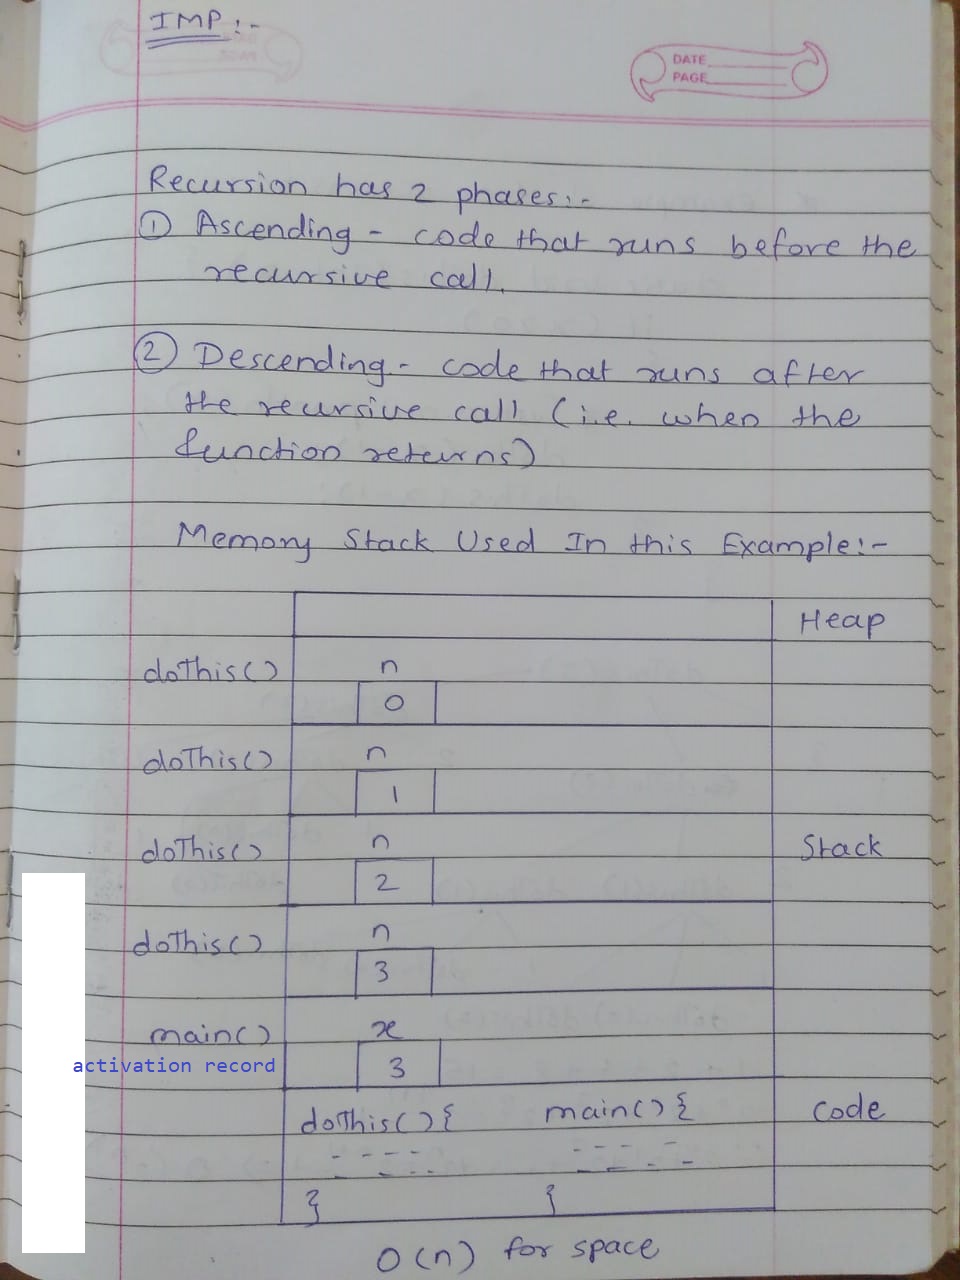 IMP :-
DATE
PAGE
Recursion has 2 phases:-
① Ascending - code that runs before the
recursive call.
② Descending - code that runs after
the recursive call (i.e. when the
function returns)
Memory Stack Used In this Example:-
Heap
doThis() n
0
doThis() n
1
doThis() n Stack
2
doThis() n
3
main() x
activation record 3
doThis(){ main(){ Code
} }
O(n) for space